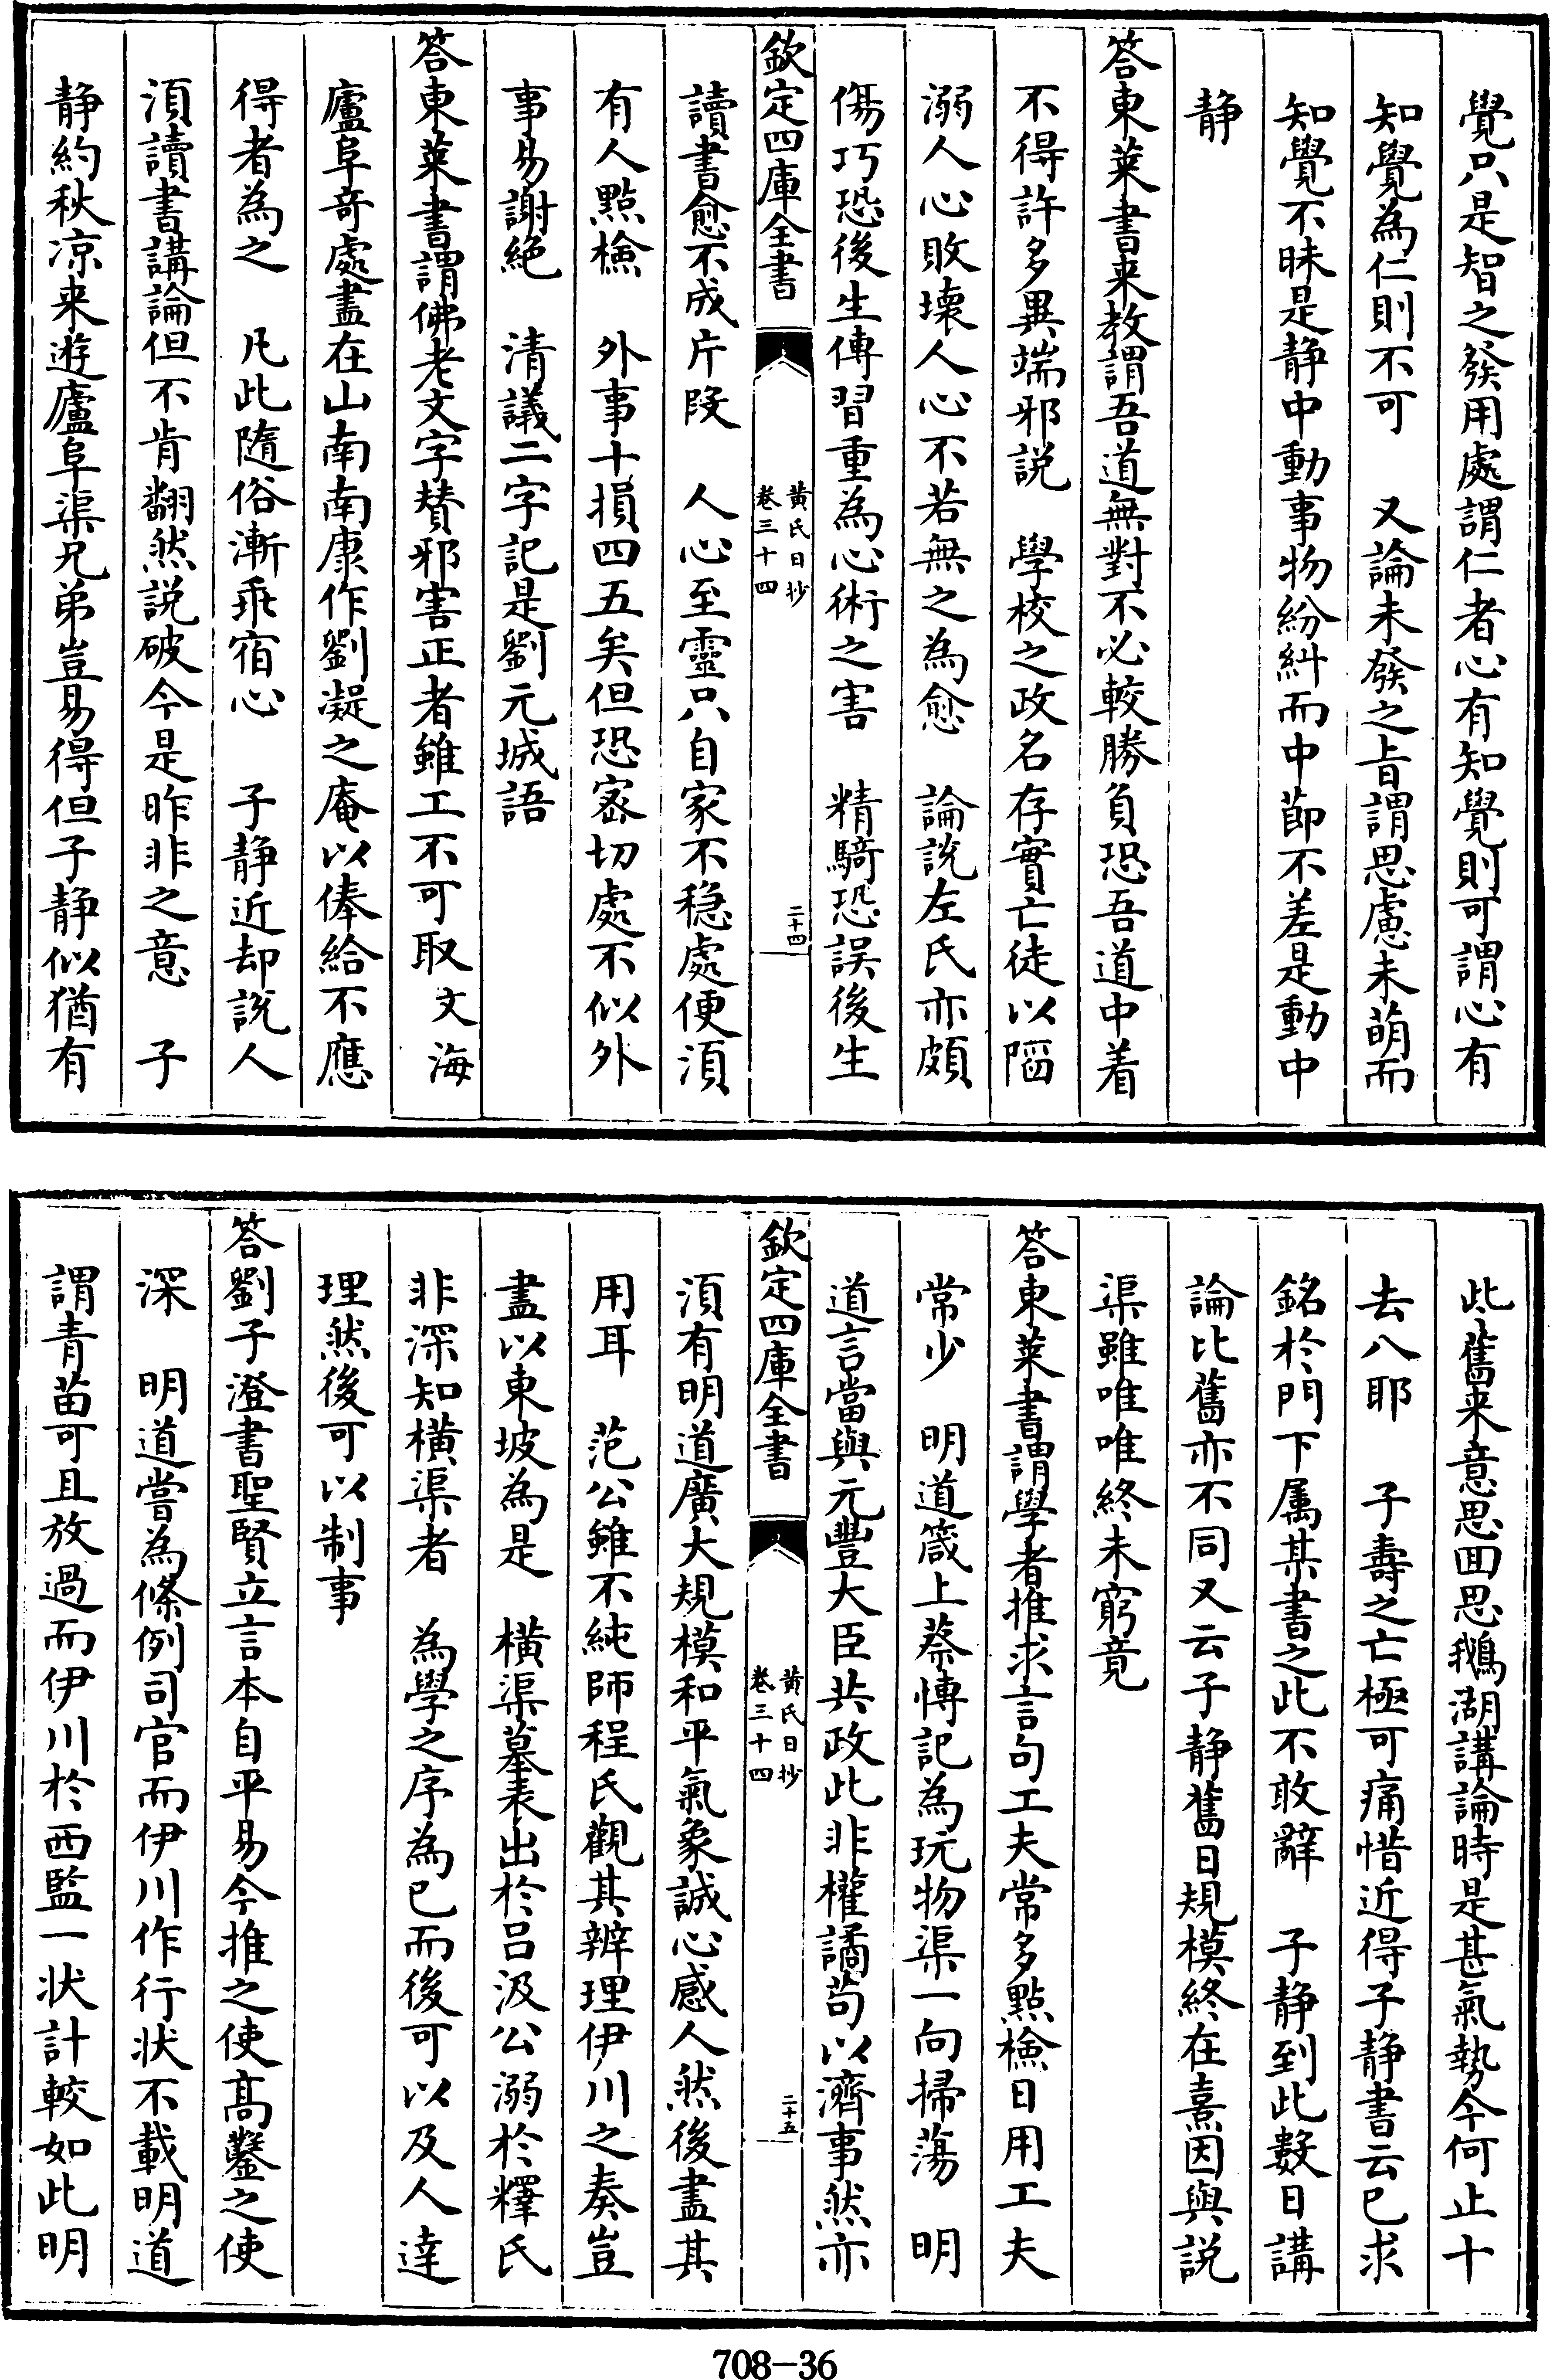 覺只是智之發用處謂仁者心有知覺則可謂心有
知覺為仁則不可　又論未發之旨謂思慮未萌而
知覺不昧是静中動事物紛糾而中節不差是動中
静
答東萊書来教謂吾道無對不必較勝負恐吾道中着
不得許多異端邪説　學校之政名存實亡徒以䧟
溺人心敗壞人心不若無之為愈　論説左氏亦頗
傷巧恐後生傳習重為心術之害　精騎恐誤後生
欽定四庫全書
黄氏日抄
卷三十四
二十四
讀書愈不成片段　人心至靈只自家不穏處便湏
有人㸃檢　外事十損四五矣但恐宻切處不似外
事易謝絶　清議二字記是劉元城語
答東萊書謂佛老文字賛邪害正者雖工不可取文海
廬阜竒處盡在山南南康作劉凝之庵以俸給不應
得者為之　凡此隨俗漸乖宿心　子静近却説人
湏讀書講論但不肯翻然説破今是昨非之意　子
静約秋凉来遊廬阜渠兄弟豈易得但子静似猶有
此舊来意思囬思鵝湖講論時是甚氣勢今何止十
去八耶　子壽之亡極可痛惜近得子静書云已求
銘於門下属某書之此不敢辭　子静到此數日講
論比舊亦不同又云子静舊日規模終在熹因與説
渠雖唯唯終未窮竟
答東萊書謂學者推求言句工夫常多㸃檢日用工夫
常少　明道箴上蔡愽記為玩物渠一向掃蕩　明
道言當與元豐大臣共政此非權譎茍以濟事然亦
欽定四庫全書
黄氏日抄
卷三十四
二十五
湏有明道廣大規模和平氣象誠心感人然後盡其
用耳　范公雖不純師程氏觀其辨理伊川之奏豈
盡以東坡為是　横渠墓表出於吕汲公溺於釋氏
非深知横渠者　為學之序為已而後可以及人達
理然後可以制事
答劉子澄書聖賢立言本自平易今推之使髙鑿之使
深　明道嘗為條例司官而伊川作行状不載明道
謂青苗可且放過而伊川於西監一状計較如此明
708-36